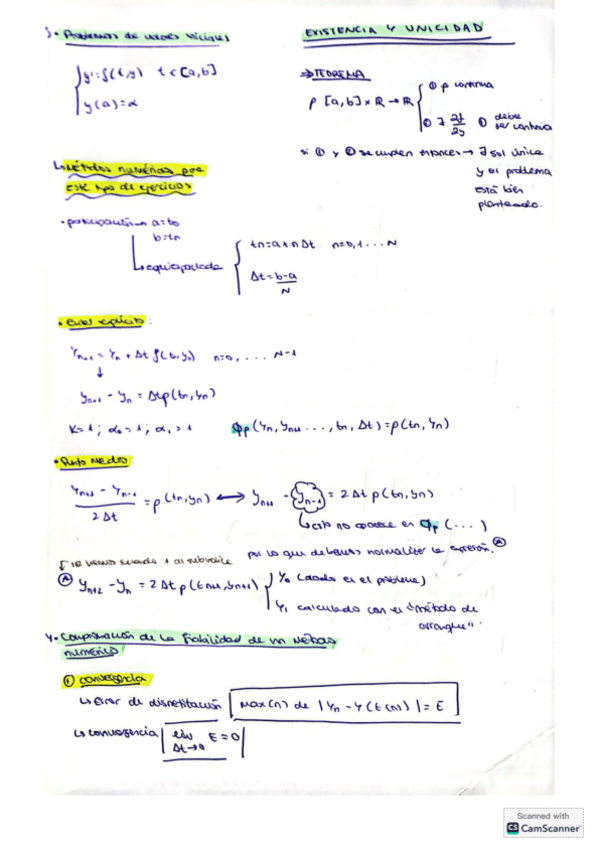 3. Problemas de valores iniciales
{ y'=f(t,y)  t∈[a,b]
y(a)=α
EXISTENCIA Y UNICIDAD
⇒TEOREMA
f [a,b]×ℝ→ℝ { ① f continua
② ∃ ∂f/∂y ① debe ser continua
si ① y ② se cumplen entonces → ∃ sol única
y el problema
está bien
planteado.
↳Métodos numéricos para
este tipo de ejercicios
· a=t0
b=tn
↳equiespaciada { tn=a+nΔt  n=0,1...N
Δt=b-a/N
· Euler explícito:
Yn+1 = Yn + Δt f(tn,yn)  n=0,....N-1
↓
yn+1 - yn = Δtf(tn,yn)
K=1; α0=1; α1=1  Φf(Yn,Yn+1...,tn,Δt)=f(tn,Yn)
· Punto Medio
Yn+1 - Yn-1/2Δt = f(tn,yn) ⟷ yn+1 - yn-1 = 2Δt f(tn,yn)
↳esto no aparece en Φf (...)
por lo que debemos normalizar la expresión. Ⓐ
↱ lo vemos sumando 1 al subíndice
Ⓐ yn+2 - yn = 2Δt f(tn+1,yn+1) { Y0 (dado en el problema)
Y1 calculado con un "método de
arranque".
4. Comprobación de la fiabilidad de un método
numérico
① convergencia
↳Error de discretización | Max(n) de |Yn - Y(t(n))| = E
↳convergencia | lim E=0
Δt→0
Scanned with
CS CamScanner